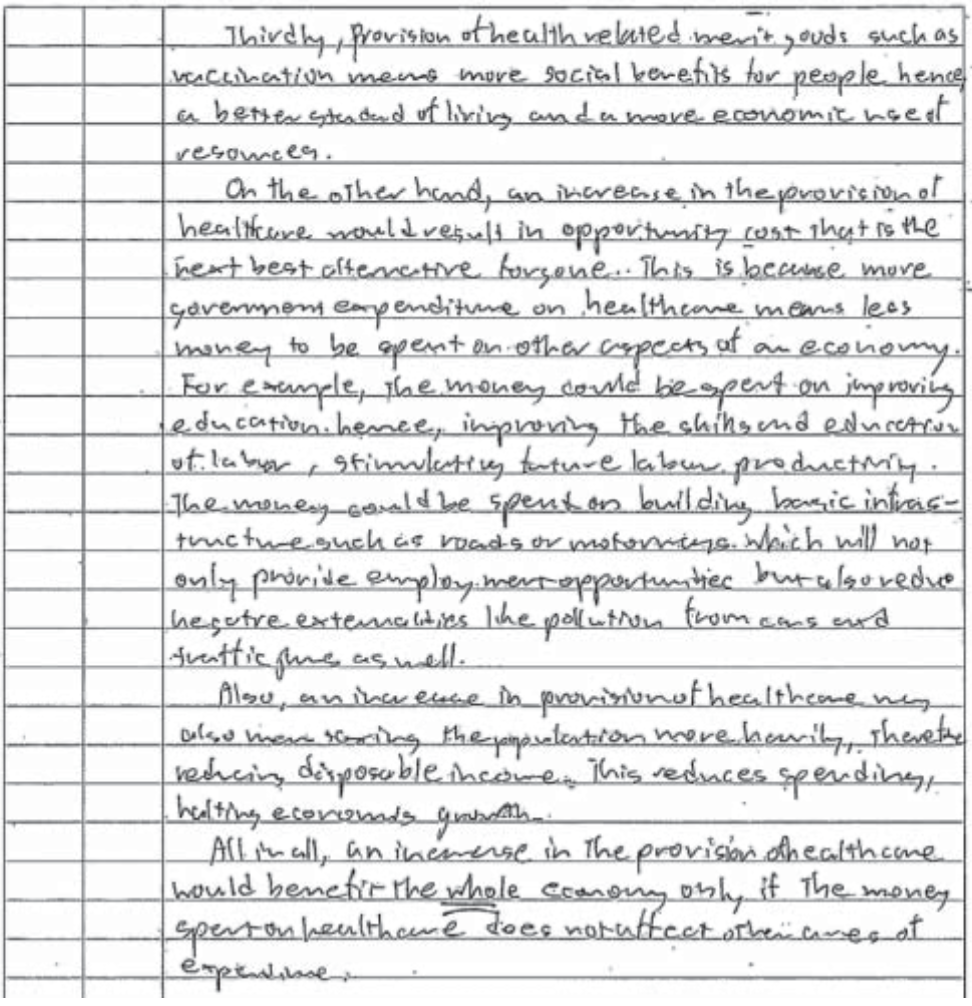 Thirdly, Provision of health related merit goods such as
vaccination means more social benefits for people hence
a better standard of living and a more economic use of
resources.
On the other hand, an increase in the provision of
healthcare would result in opportunity cost that is the
next best alternative forgone.. This is because more
government expenditure on healthcare means less
money to be spent on other aspects of an economy.
For example, the money could be spent on improving
education. hence, improving the skills and education
of labor, stimulating future labour productivity.
The money could be spent on building basic infras-
tructure such as roads or motorways. which will not
only provide employment opportunities but also reduce
negative externalities like pollution from cars and
traffic jams as well.
Also, an increase in provision of healthcare may
also mean taxing the population more heavily, therefore
reducing disposable income. This reduces spending,
halting economic growth.
All in all, an increase in the provision of healthcare
would benefit the whole economy only if the money
spent on healthcare does not affect other areas of
expenditure.